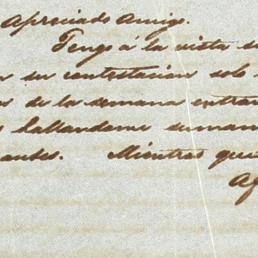 Apreciado Amigo.
Tengo á la vista su
su contestacion solo
de la semana entran
hallandome suman
Mientras que